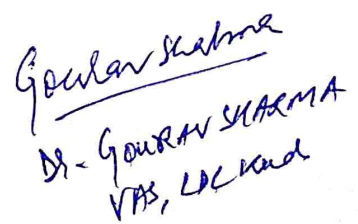 Gourav Sharma
Dr. GOURAV SHARMA
VAS, LDC Kud